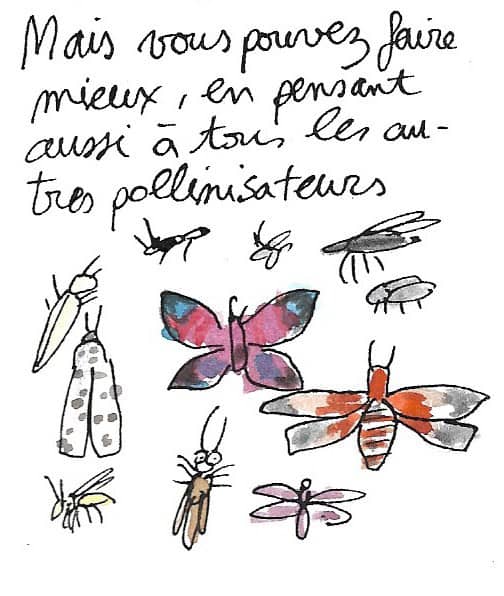 Mais vous pouvez faire
mieux, en pensant
aussi à tous les au-
tres pollinisateurs